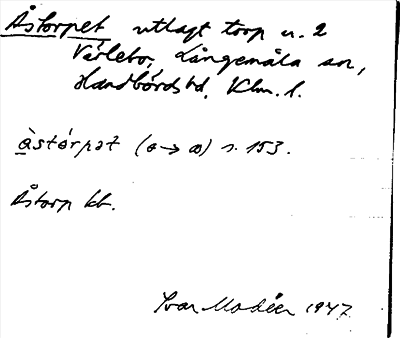 Åstorpet utlagt torp u. 2
Värlebo, Långemåla sn,
Handbörds hd, Klm. l.
àstórpət (o → ω) s. 153.
Åstorp kb.
Ivar Modéer 1947.